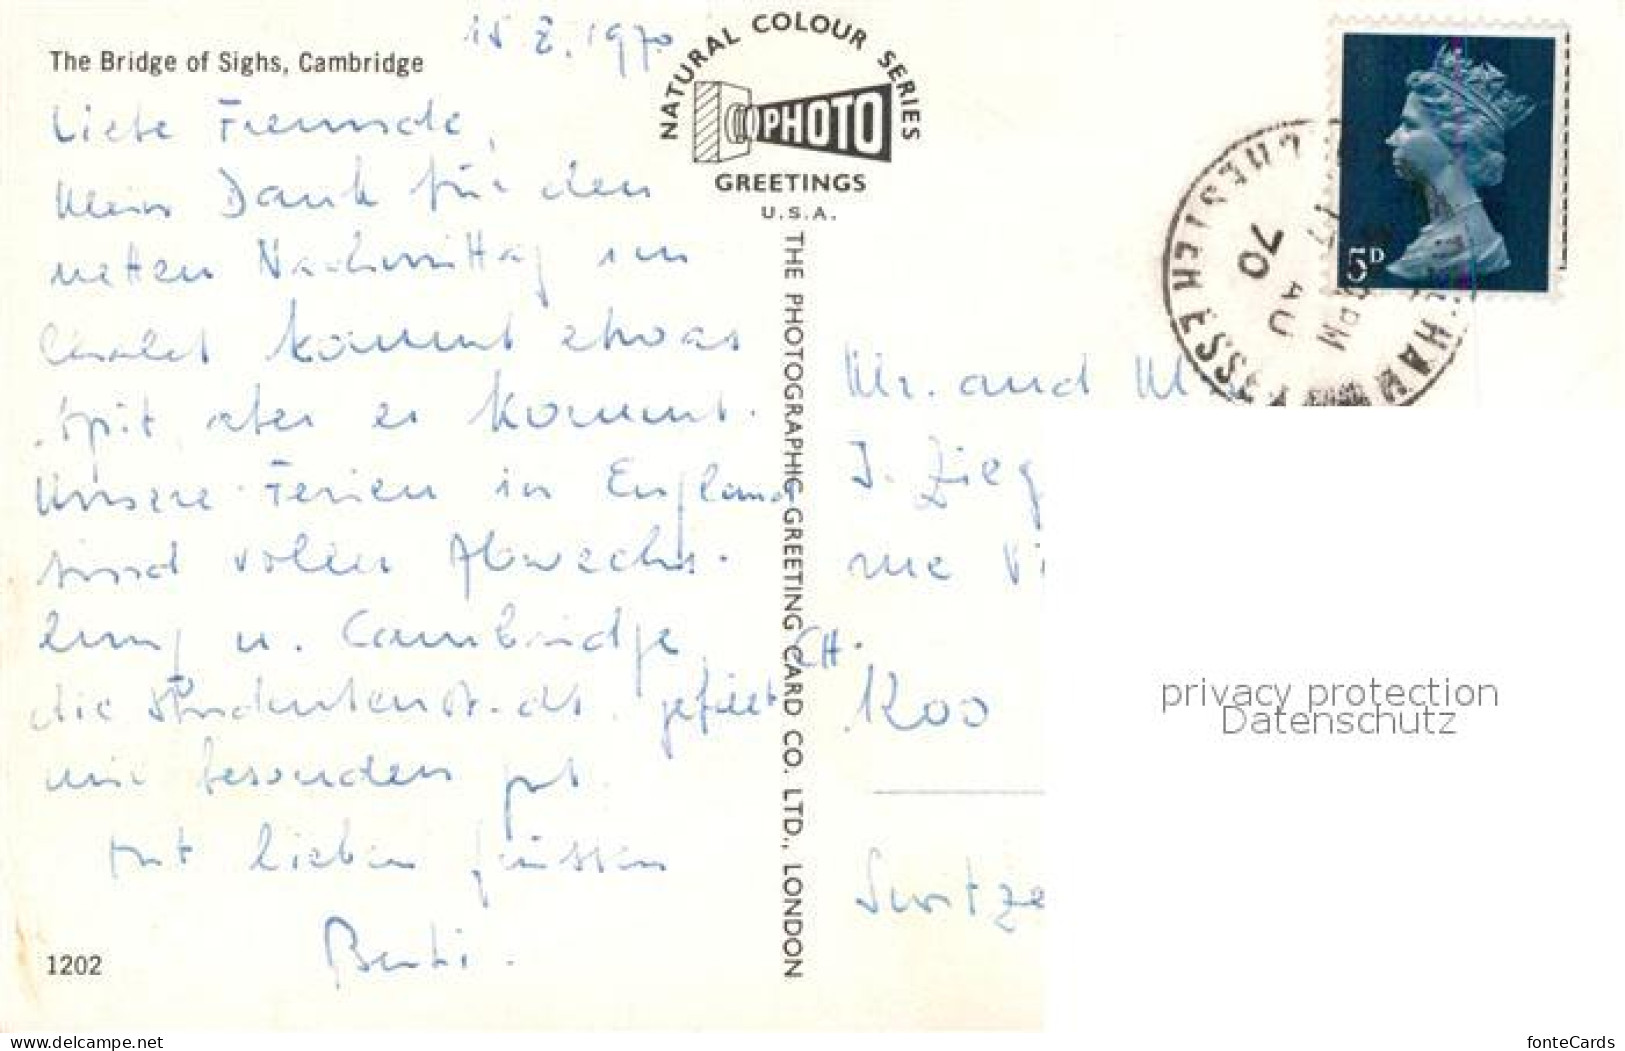 The Bridge of Sighs, Cambridge
15 8. 1970
Liebe Freunde,
Mein Dank für den
netten Nachmittag im
Chalet kommt etwas
spät, aber er kommt.
Unsere Ferien in England
sind voller Abwechs-
lung u. Cambridge
die Studentenstadt, gefällt
mir besonders gut.
Mit lieben Grüssen
1202
NATURAL COLOUR SERIES
PHOTO
GREETINGS
U.S.A.
THE PHOTOGRAPHIC GREETING CARD CO. LTD., LONDON
5D
CHESTER
70
AU
PM
Mr. and M
J. Zieg
rue Vi
CH.
Switze
privacy protection
Datenschutz
www.delcampe.net
fonteCards